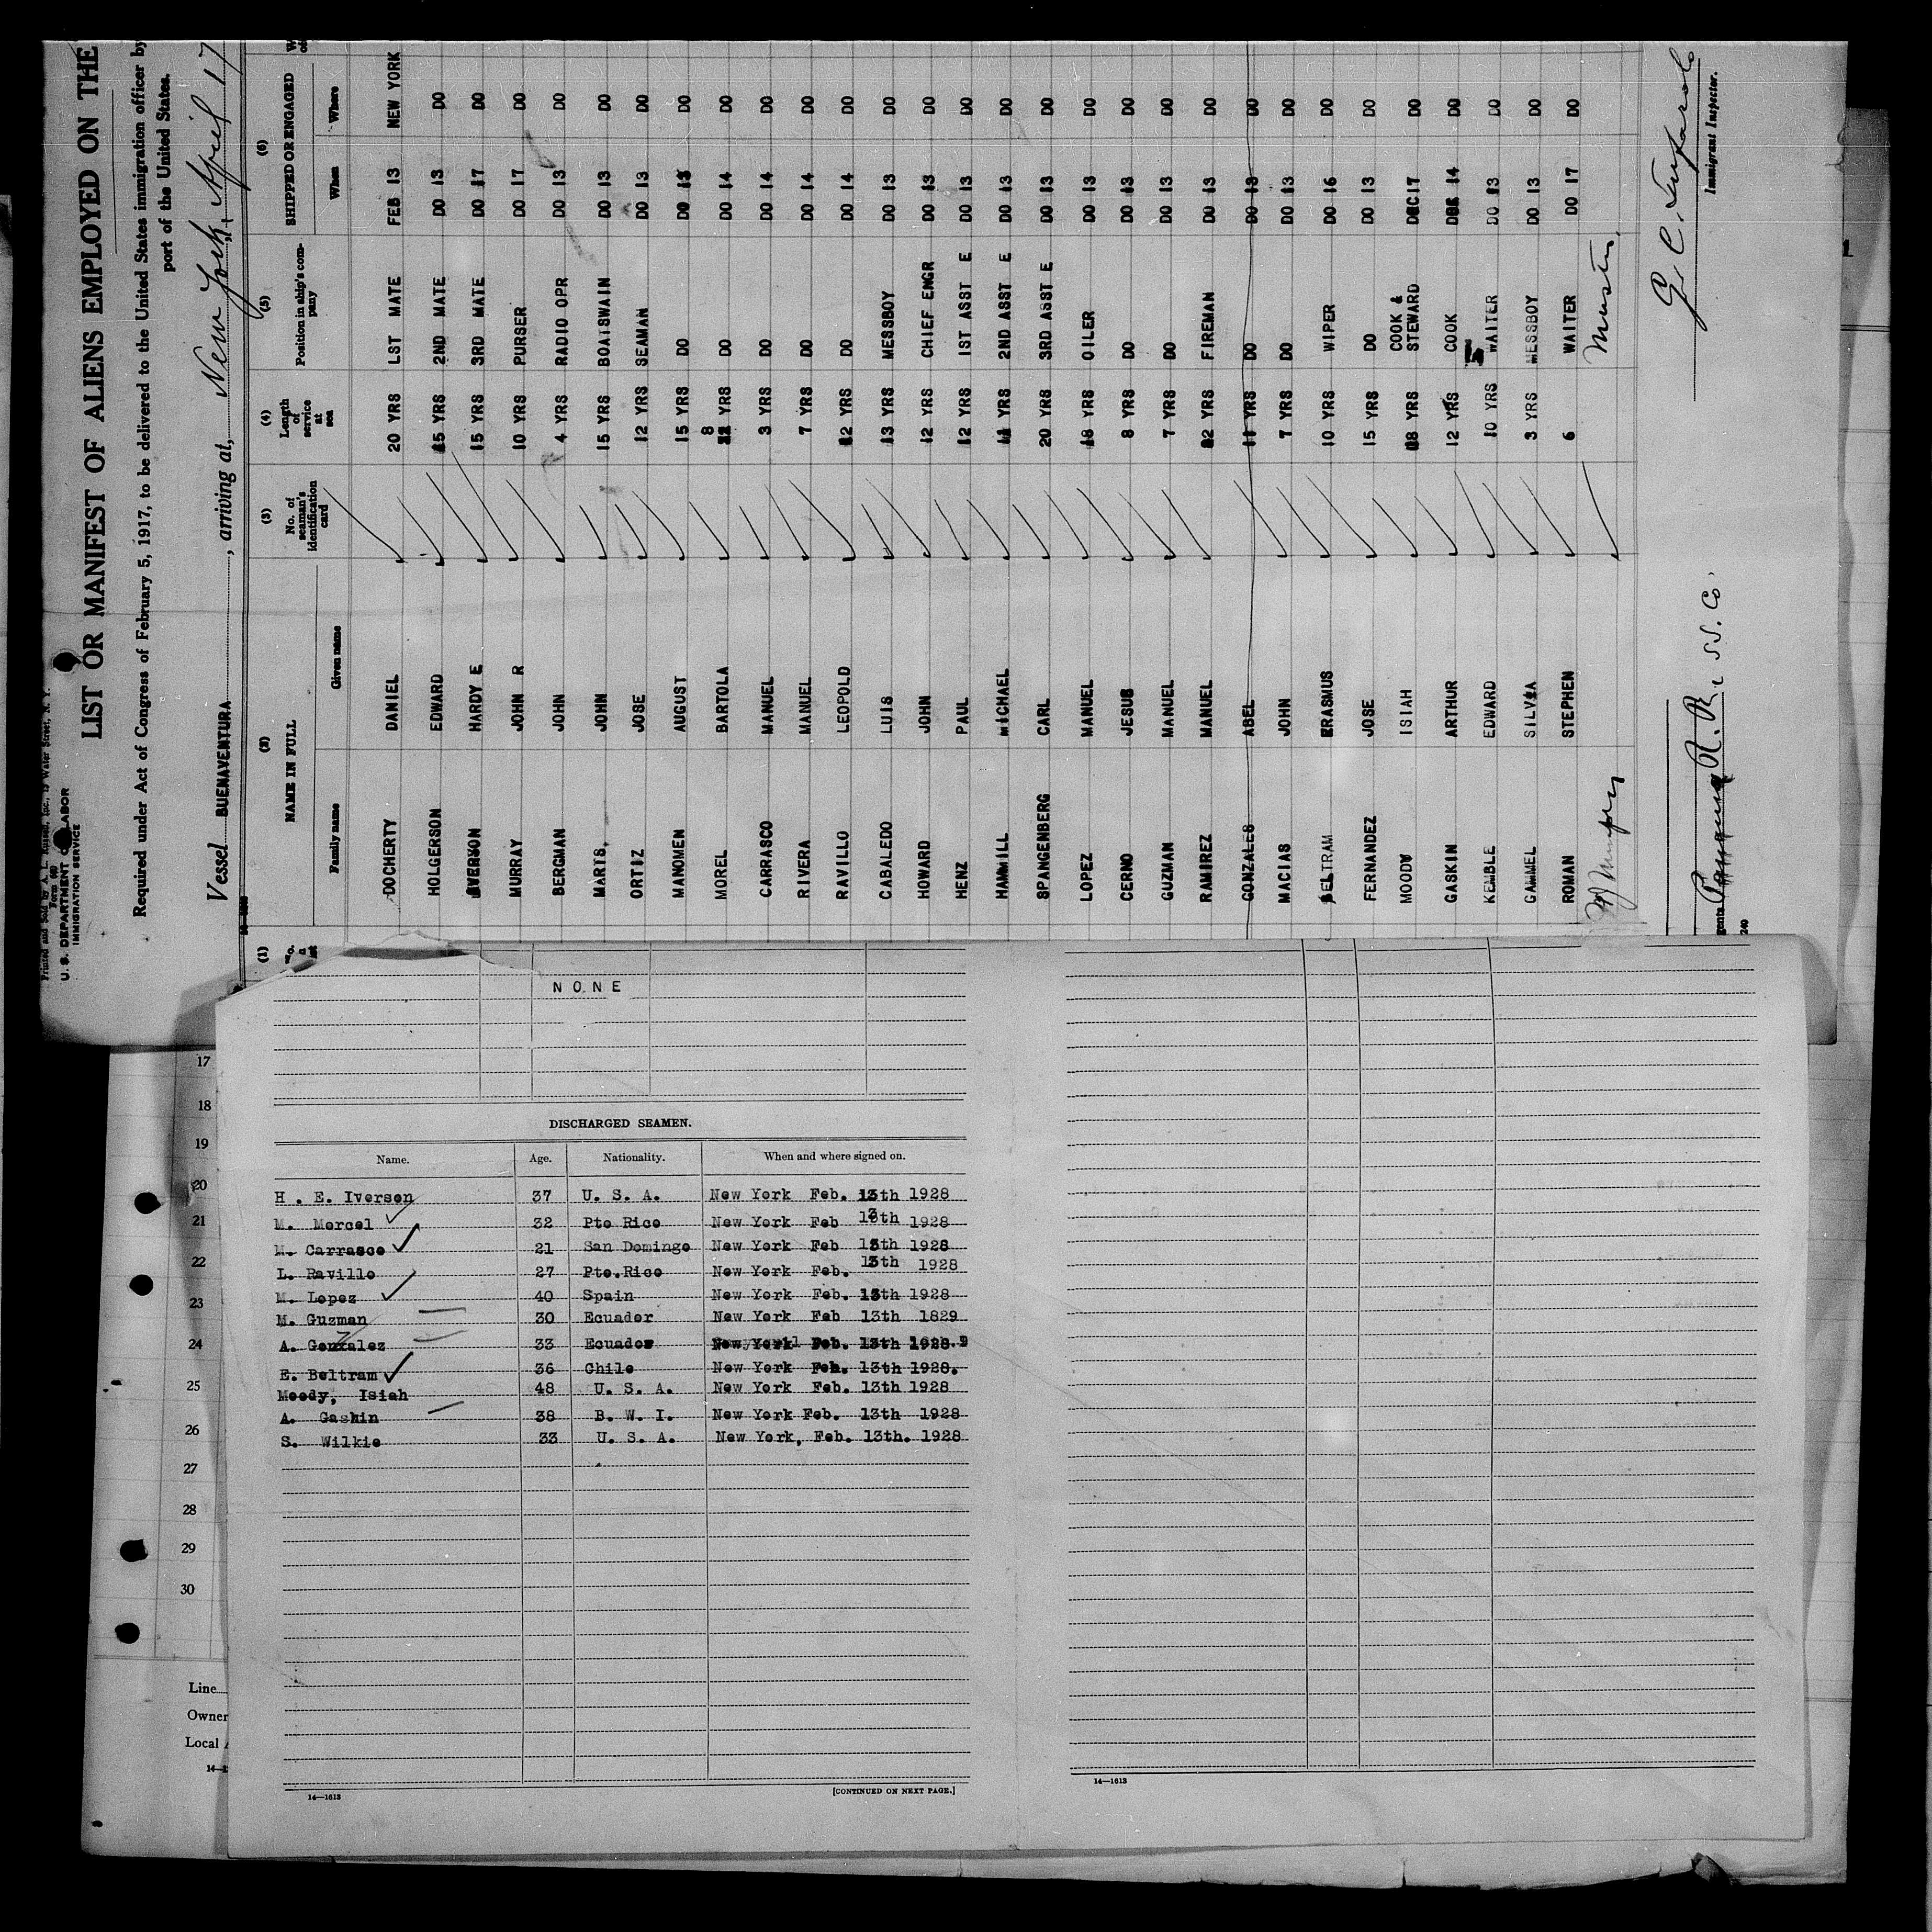 Printed and Sold by A. L. Russell, Inc., 19 Water Street, N. Y.
Form 680
U. S. DEPARTMENT OF LABOR
IMMIGRATION SERVICE
LIST OR MANIFEST OF ALIENS EMPLOYED ON THE
Required under Act of Congress of February 5, 1917, to be delivered to the United States immigration officer by
port of the United States.
Vessel BUENAVENTURA, arriving at, New York, April 17
(1) (2) (3) (4) (5) (6)
NAME IN FULL No. of seaman's identification card Length of service at sea Position in ship's company SHIPPED OR ENGAGED
Family name Given name When Where
DOCHERTY DANIEL 20 YRS LST MATE FEB 13 NEW YORK
HOLGERSON EDWARD 15 YRS 2ND MATE DO 13 DO
IVERSON HARDY E 15 YRS 3RD MATE DO 17 DO
MURRAY JOHN R 10 YRS PURSER DO 17 DO
BERGMAN JOHN 4 YRS RADIO OPR DO 13 DO
MARTS, JOHN 15 YRS BOATSWAIN DO 13 DO
ORTIZ JOSE 12 YRS SEAMAN DO 13 DO
MANOMEN AUGUST 15 YRS DO DO 13 DO
MOREL BARTOLA 8 YRS DO DO 14 DO
CARRASCO MANUEL 3 YRS DO DO 14 DO
RIVERA MANUEL 7 YRS DO DO 14 DO
RAVILLO LEOPOLD 12 YRS DO DO 14 DO
CABALEDO LUIS 13 YRS MESSBOY DO 13 DO
HOWARD JOHN 12 YRS CHIEF ENGR DO 13 DO
HENZ PAUL 12 YRS 1ST ASST E DO 13 DO
HAMMILL MICHAEL 11 YRS 2ND ASST E DO 13 DO
SPANGENBERG CARL 20 YRS 3RD ASST E DO 13 DO
LOPEZ MANUEL 18 YRS OILER DO 13 DO
CERNO JESUS 8 YRS DO DO 13 DO
GUZMAN MANUEL 7 YRS DO DO 13 DO
RAMIREZ MANUEL 12 YRS FIREMAN DO 13 DO
GONZALES ABEL 11 YRS DO DO 13 DO
MACIAS JOHN 7 YRS DO DO 13 DO
BELTRAM ERASMUS 10 YRS WIPER DO 16 DO
FERNANDEZ JOSE 15 YRS DO DO 13 DO
MOODY ISIAH 18 YRS COOK & STEWARD DEC 17 DO
GASKIN ARTHUR 12 YRS COOK 14 DO
KEMBLE EDWARD 10 YRS WAITER DO 13 DO
GAMMEL SILVIA 3 YRS MESSBOY DO 13 DO
ROMAN STEPHEN 6 WAITER DO 17 DO
Master.
Panama R. R. SS. Co.
G. C.
Immigrant Inspector.
240
NONE
DISCHARGED SEAMEN.
Name. Age. Nationality. When and where signed on.
H. E. Iverson 37 U. S. A. New York Feb. 13th 1928
M. Morcel 32 Pto Rico New York Feb 13th 1928
M. Carrasco 21 San Domingo New York Feb 13th 1928
L. Ravillo 27 Pto.Rico New York Feb. 13th 1928
M. Lopez 40 Spain New York Feb. 13th 1928
M. Guzman 30 Ecuador New York Feb 13th 1829
A. Gonzalez 33 Ecuador New York Feb. 13th 1928
E. Beltram 36 Chile New York Feb. 13th 1928.
Moody, Isiah 48 U. S. A. New York Feb. 13th 1928
A. Gashin 38 B. W. I. New York Feb. 13th 1928
S. Wilkie 33 U. S. A. New York, Feb. 13th. 1928
14—1613
[CONTINUED ON NEXT PAGE.]
14—1613
17
18
19
20
21
22
23
24
25
26
27
28
29
30
Line
Owner
Local